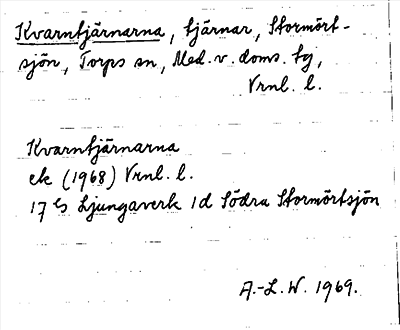 Kvarntjärnarna, tjärnar, Stormört-
sjön, Torps sn, Med. v. doms. tg,
Vrnl. l.
Kvarntjärnarna
ek (1968) Vrnl. l.
17 Es Ljungaverk 1d Södra Stormörtsjön
A.-L. W. 1969.